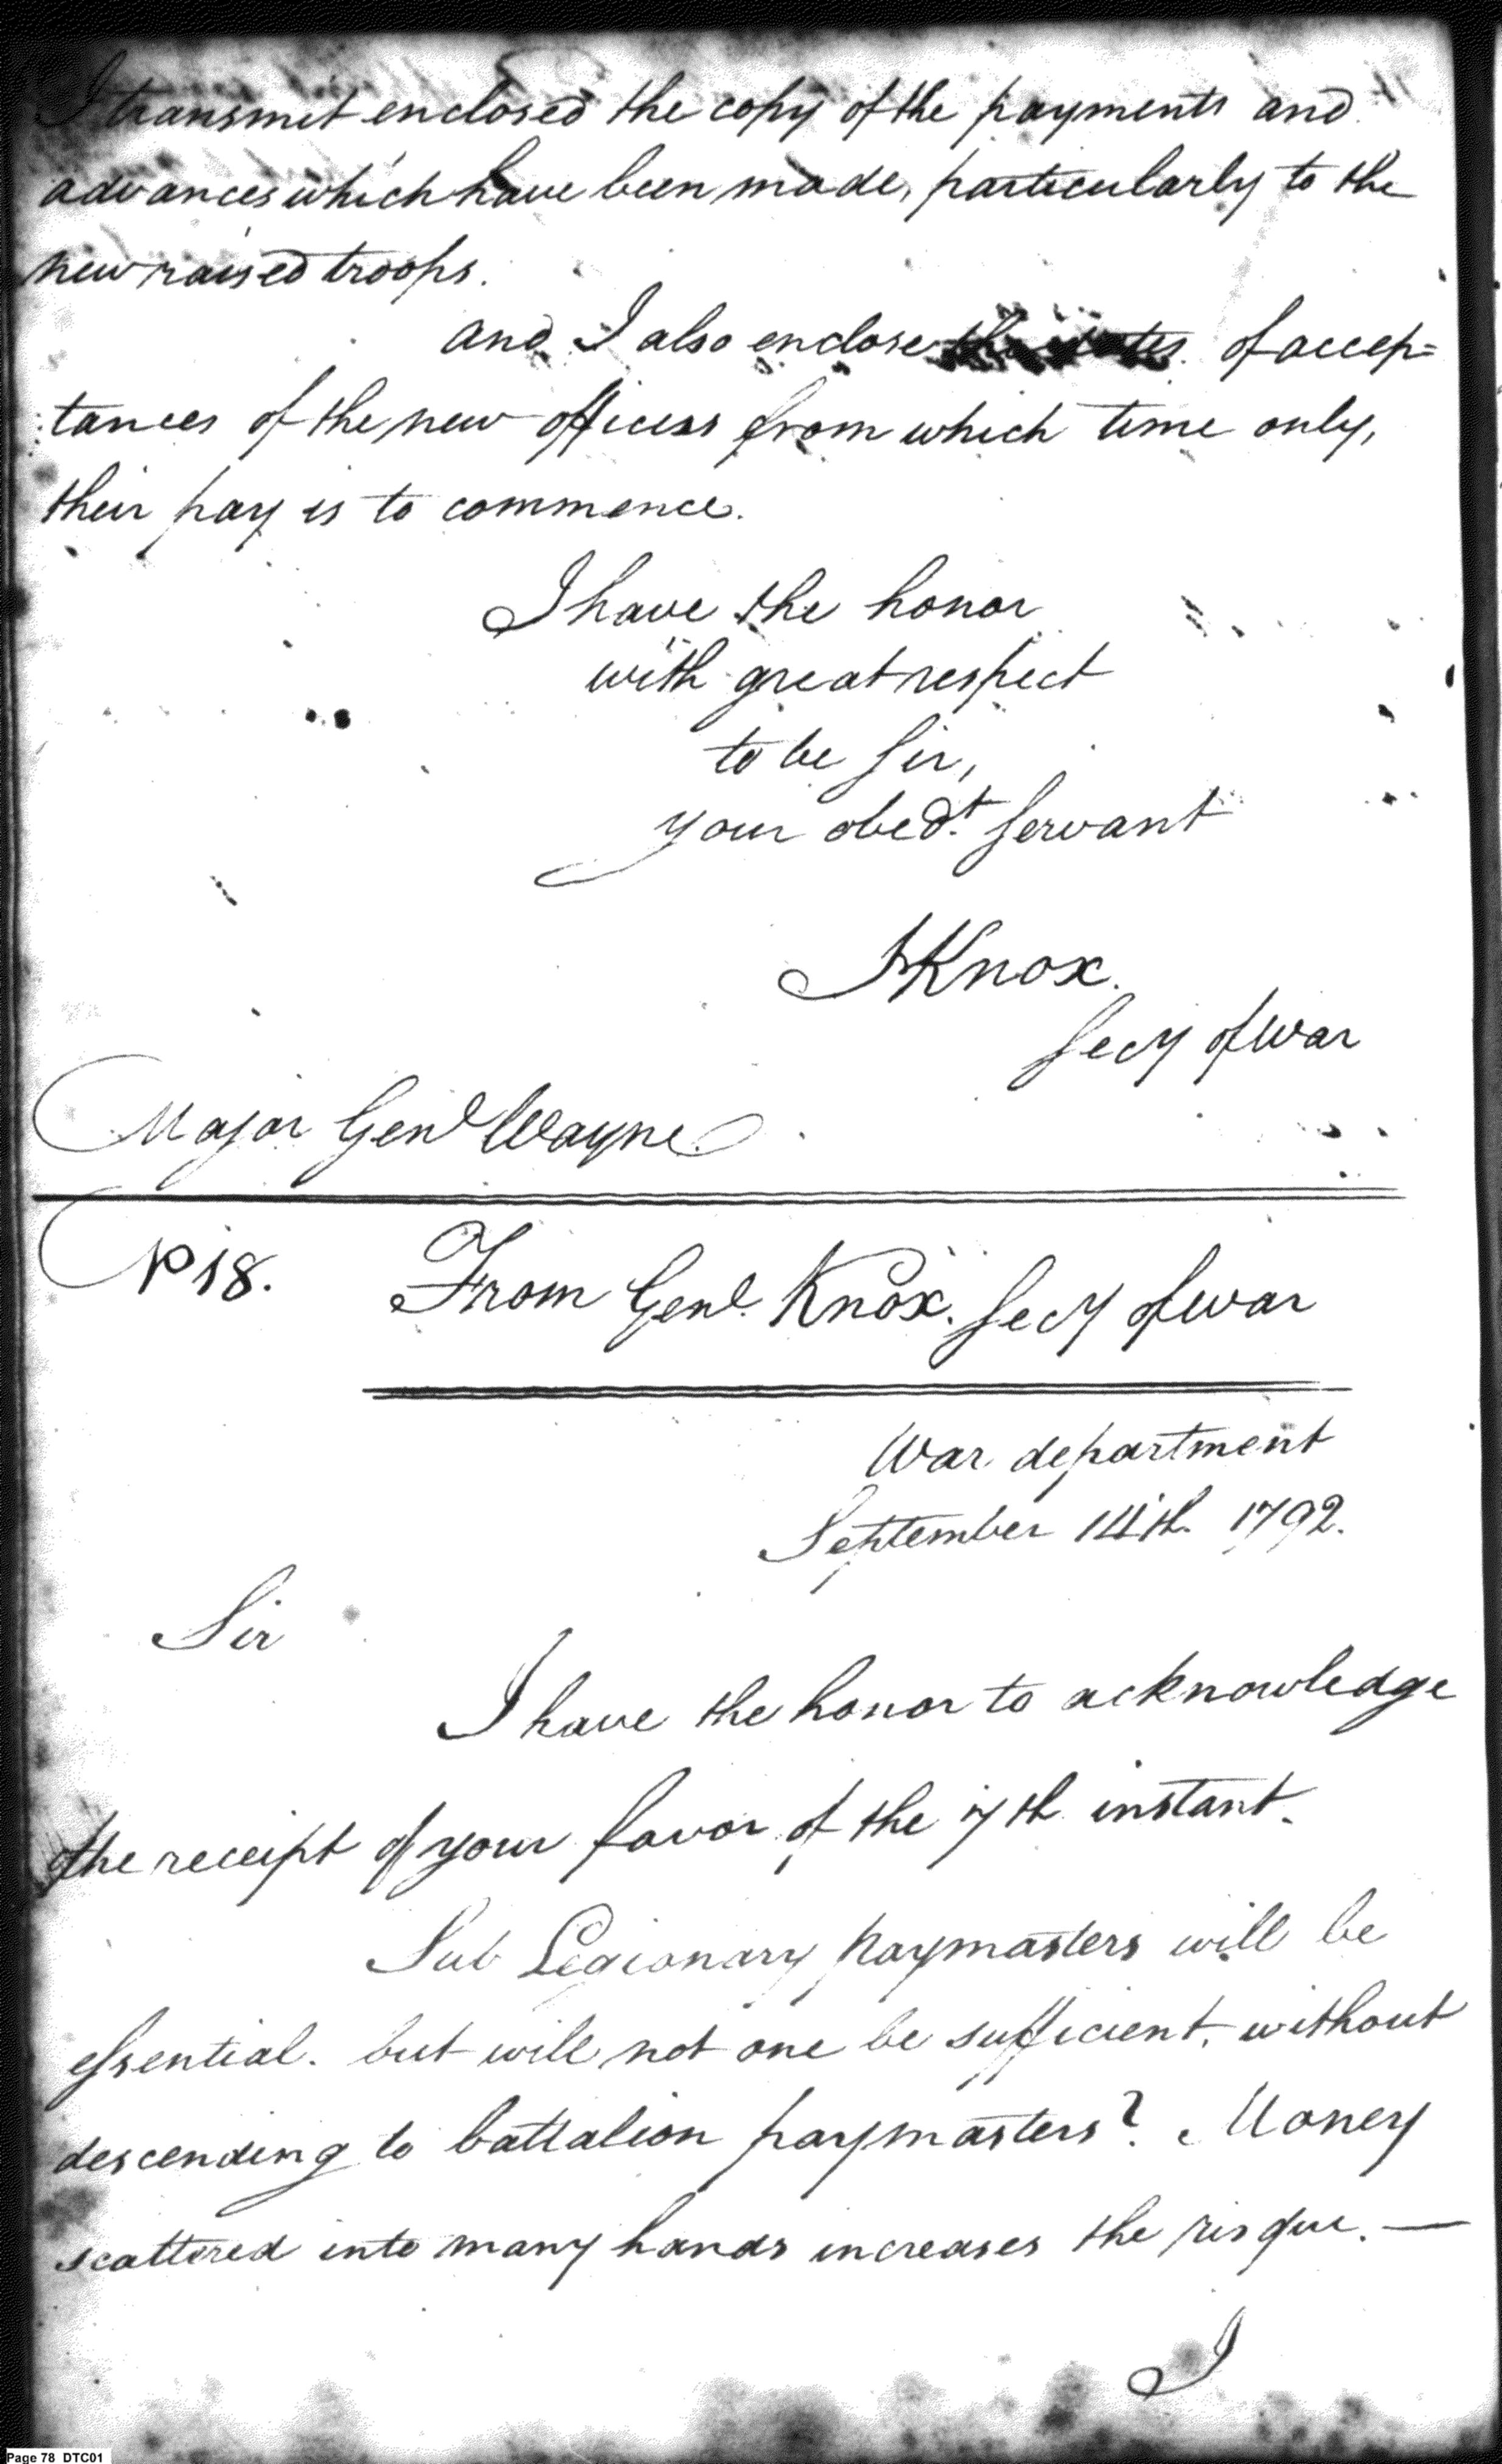 I transmit enclosed the copy of the payments and
advances which have been made, particularly to the
new raised troops.
and I also enclose the dates of accep=
tances of the new officers from which time only,
their pay is to commence.
I have the honor
with great respect
to be Sir,
your obedt. Servant
HKnox.
Secy of War
Major Genl Wayne
No 18.
From Genl. Knox. Secy of War
War department
September 14th. 1792.
Sir
I have the honor to acknowledge
the receipt of your favor of the 7th instant.
Sub Legionary paymasters will be
essential. but will not one be sufficient, without
descending to battalion paymasters? Money
scattered into many hands increases the risque. —
I
Page 78 DTC01